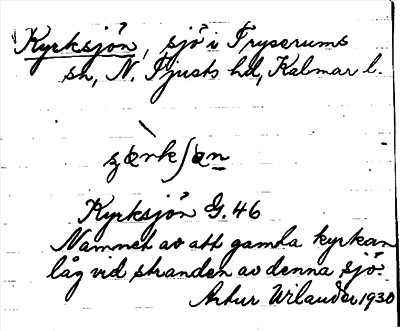 Kyrksjön, sjö i Tryserums
sn, N. Tjusts hd, Kalmar l.
Kyrksjön G. 46
Namnet av att gamla kyrkan
låg vid stranden av denna sjö.
Artur Wilander 1930